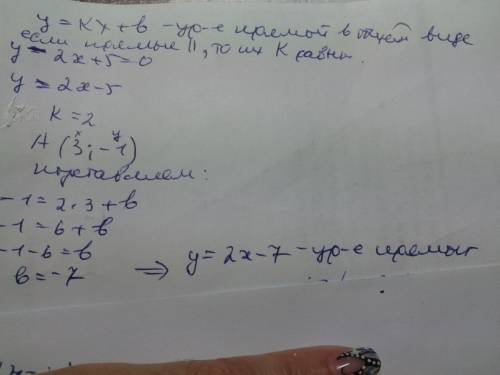 y = kx + b - ур-е прямой в общем виде
если прямые ||, то их K равны.
y - 2x + 5 = 0
y = 2x - 5
K = 2
x y
A (3; -1)
подставляем:
-1 = 2·3 + b
-1 = 6 + b
-1 - 6 = b
b = -7 ⇒ y = 2x - 7 - ур-е прямых